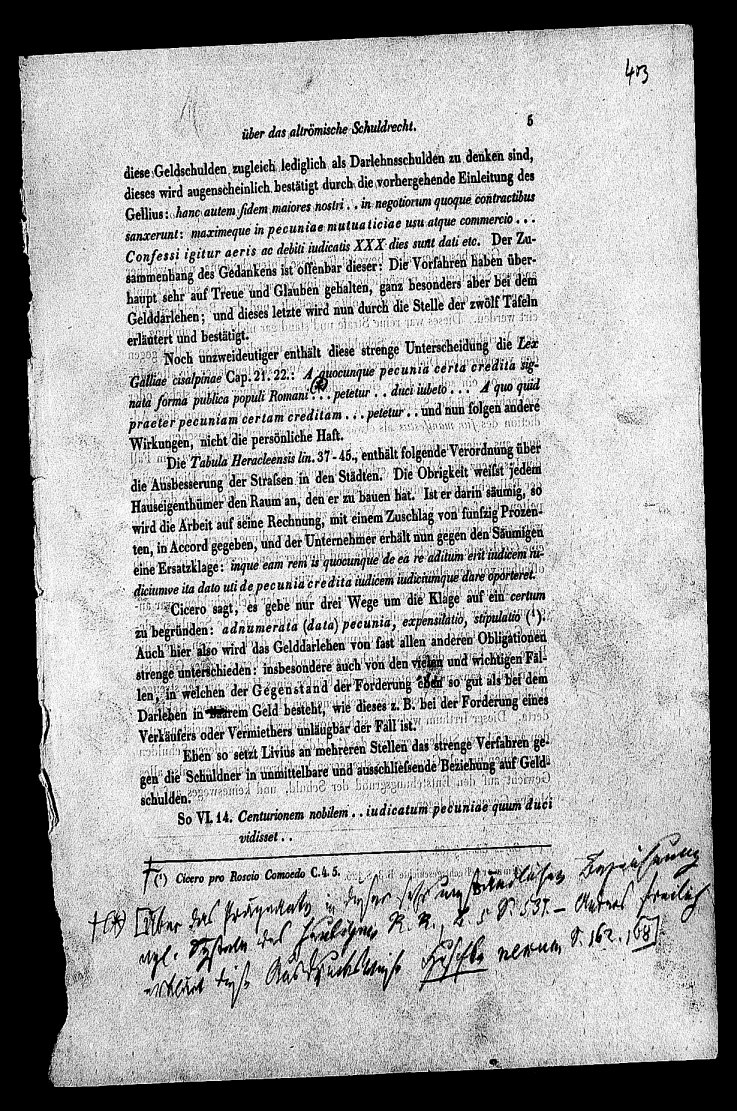 403
über das altrömische Schuldrecht. 5
diese Geldschulden zugleich lediglich als Darlehnsschulden zu denken sind,
dieses wird augenscheinlich bestätigt durch die vorhergehende Einleitung des
Gellius: hanc autem fidem maiores nostri . . in negotiorum quoque contractibus
sanxerunt: maximeque in pecuniae mutuaticiae usu atque commercio . . .
Confessi igitur aeris ac debiti iudicatis XXX dies sunt dati etc. Der Zu-
sammenhang des Gedankens ist offenbar dieser: Die Vorfahren haben über-
haupt sehr auf Treue und Glauben gehalten, ganz besonders aber bei dem
Gelddarlehen; und dieses letzte wird nun durch die Stelle der zwölf Tafeln
erläutert und bestätigt.
Noch unzweideutiger enthält diese strenge Unterscheidung die Lex
Galliae cisalpinae Cap. 21. 22.: A quocunque pecunia certa credita sig-
nata forma publica populi Romani . . . petetur . . duci iubeto . . . A quo quid
praeter pecuniam certam creditam . . . petetur . . und nun folgen andere
Wirkungen, nicht die persönliche Haft.
Die Tabula Heracleensis lin. 37-45., enthält folgende Verordnung über
die Ausbesserung der Straſsen in den Städten. Die Obrigkeit weiſst jedem
Hauseigenthümer den Raum an, den er zu bauen hat. Ist er darin säumig, so
wird die Arbeit auf seine Rechnung, mit einem Zuschlag von funfzig Prozen-
ten, in Accord gegeben, und der Unternehmer erhält nun gegen den Säumigen
eine Ersatzklage: inque eam rem is quocunque de ea re aditum erit iudicem iu-
diciumve ita dato uti de pecunia credita iudicem iudiciumque dare oporteret.
Cicero sagt, es gebe nur drei Wege um die Klage auf ein certum
zu begründen: adnumerata (data) pecunia, expensilatio, stipulatio (¹).
Auch hier also wird das Gelddarlehen von fast allen anderen Obligationen
strenge unterschieden: insbesondere auch von den vielen und wichtigen Fäl-
len, in welchen der Gegenstand der Forderung eben so gut als bei dem
Darlehen in baarem Geld besteht, wie dieses z. B. bei der Forderung eines
Verkäufers oder Vermiethers unläugbar der Fall ist.
Eben so setzt Livius an mehreren Stellen das strenge Verfahren ge-
gen die Schuldner in unmittelbare und ausschlieſsende Beziehung auf Geld-
schulden.
So VI. 14. Centurionem nobilem . . iudicatum pecuniae quum duci
vidisset . .
(¹) Cicero pro Roscio Comoedo C. 4. 5.
[Über das in dieser sehr umständlichen Bezeichnung
vgl. System des heutigen R. R., B. 5 S. 537. – Anders freilich
erklärt diese Ausdrucksweise Huschke nexum S. 162. 168]